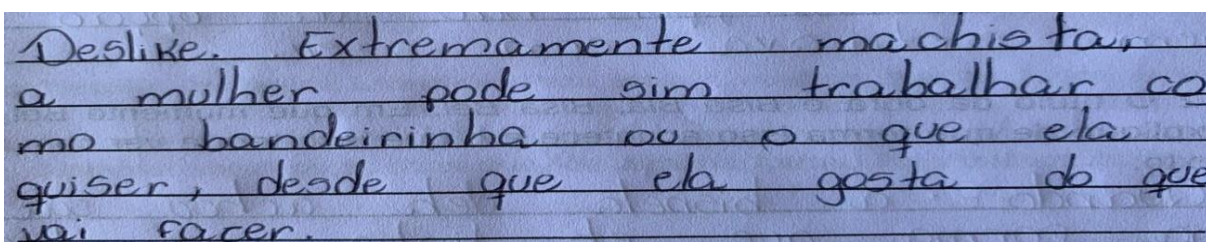 Deslike. Extremamente machista,
a mulher pode sim trabalhar co
mo bandeirinha ou o que ela
quiser, desde que ela gosta do que
vai facer.